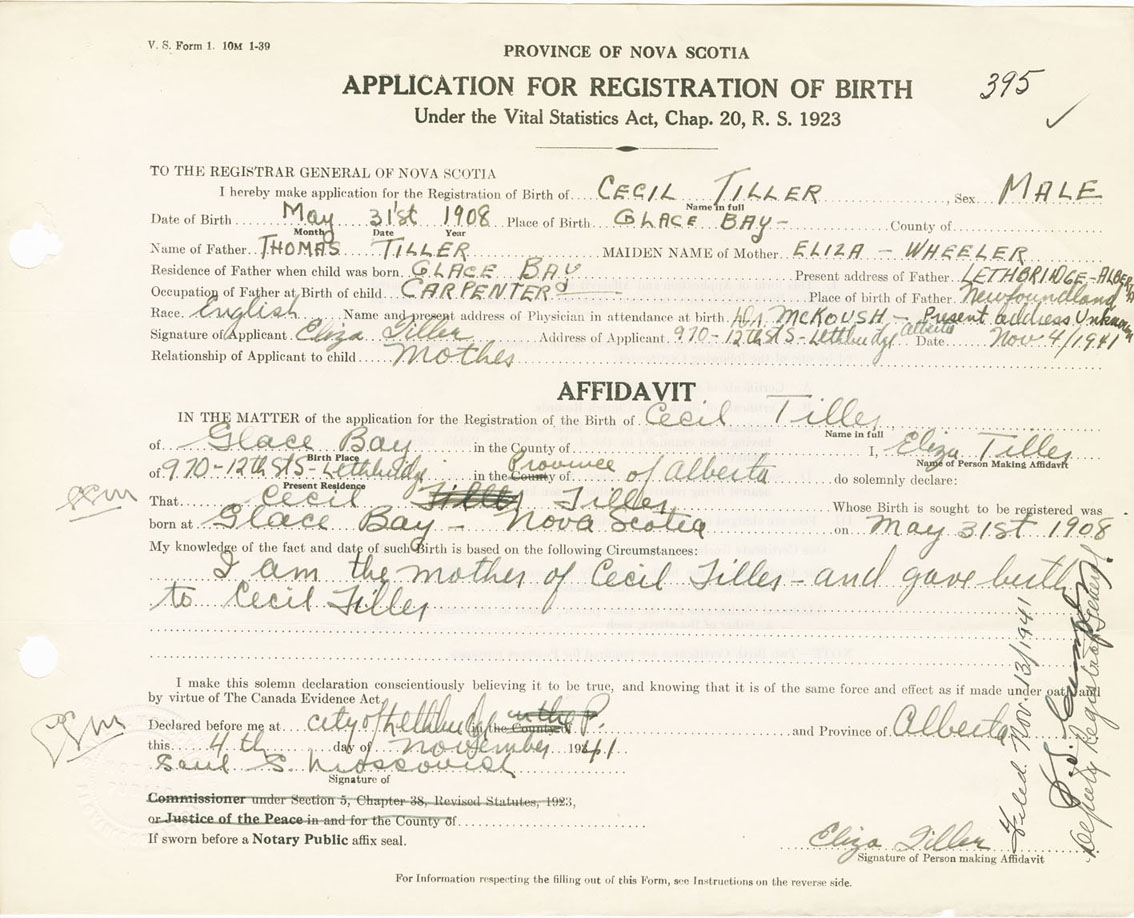 V. S. Form 1. 10M 1-39
PROVINCE OF NOVA SCOTIA
APPLICATION FOR REGISTRATION OF BIRTH
395
Under the Vital Statistics Act, Chap. 20, R. S. 1923
TO THE REGISTRAR GENERAL OF NOVA SCOTIA
I hereby make application for the Registration of Birth of CECIL TILLER, Sex MALE
Name in full
Date of Birth May 31st 1908 Place of Birth GLACE BAY - County of
Month Date Year
Name of Father THOMAS TILLER MAIDEN NAME of Mother ELIZA - WHEELER
Residence of Father when child was born GLACE BAY Present address of Father LETHBRIDGE-ALBERTA
Occupation of Father at Birth of child CARPENTER Place of birth of Father Newfoundland
Race English Name and present address of Physician in attendance at birth Dr McKOUSH - Present address Unknown
Signature of Applicant Eliza Tiller Address of Applicant 970-12th St S- Lethbridge Alberta Date Nov 4/1941
Relationship of Applicant to child Mother
AFFIDAVIT
IN THE MATTER of the application for the Registration of the Birth of Cecil Tiller
Name in full
of Glace Bay in the County of I, Eliza Tiller
Birth Place Name of Person Making Affidavit
of 970-12th St S- Lethbridge in the County Province of Alberta do solemnly declare:
Present Residence
That Cecil Tiller Tiller Whose Birth is sought to be registered was
born at Glace Bay - Nova Scotia on May 31st 1908
My knowledge of the fact and date of such Birth is based on the following Circumstances:
I am the mother of Cecil Tiller - and gave birth
to Cecil Tiller
I make this solemn declaration conscientiously believing it to be true, and knowing that it is of the same force and effect as if made under oath and
by virtue of The Canada Evidence Act.
Declared before me at city of Lethbridge in the County in the P. and Province of Alberta
this 4th day of November 1941
Saul S.
Signature of
Commissioner under Section 5, Chapter 38, Revised Statutes, 1923,
or Justice of the Peace in and for the County of
If sworn before a Notary Public affix seal.
Eliza Tiller
Signature of Person making Affidavit
For Information respecting the filling out of this Form, see Instructions on the reverse side.
Filed. Nov. 13/1941
Deputy Registrar General